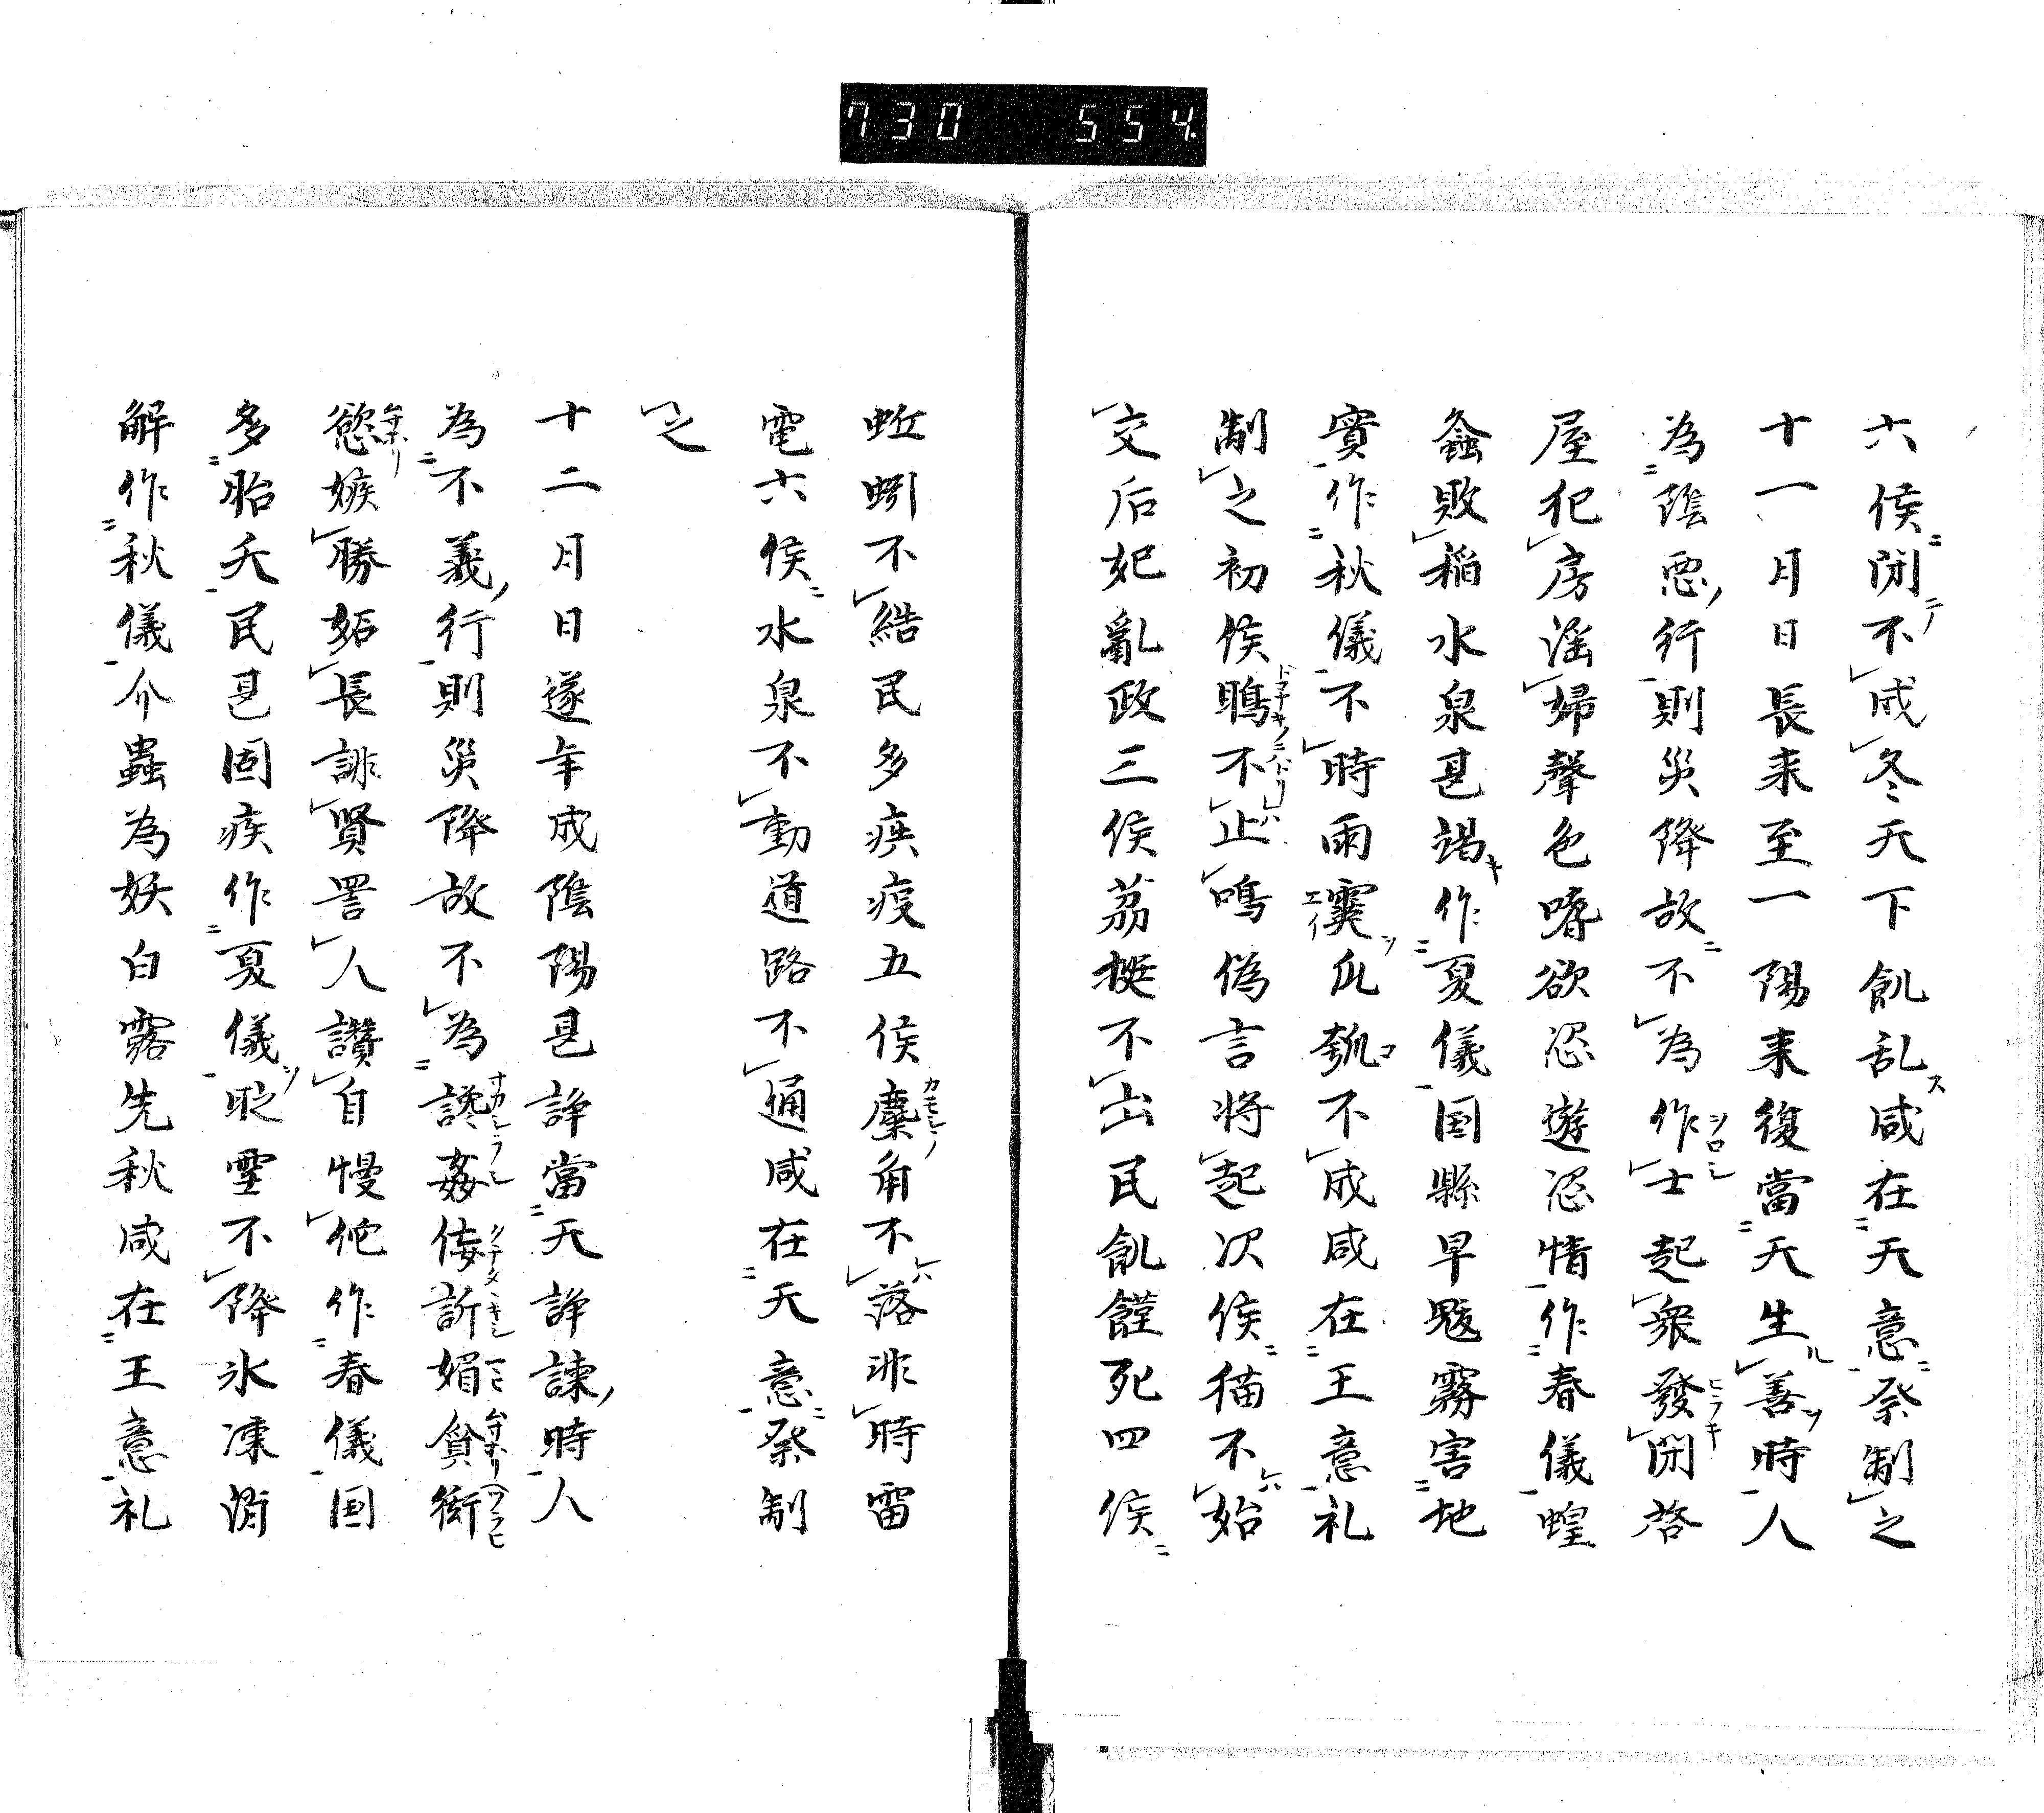 730 554.
六侯閉不成冬天下飢乱咸在天意祭制之
十一月日長来至一陽来復當天生善時人
為陰悪行則災降故不為作士起衆發開啓
屋犯房滛婦聲色嗜欲恣遊恣情作春儀蝗
蟲敗稲水泉甚竭作夏儀国縣旱魃霧害地
實作秋儀不時雨瓜瓠不成咸在王意礼
制之初侯鶡不止鳴偽言将起次侯猫不始
交后妃亂政三侯荔挺不出民飢饉死四侯
蚯蚓不結民多疾疫五侯麋角不落非時雷
電六侯水泉不動道路不通咸在天意祭制
之
十二月日遂年成陰陽甚諍當天諍諫時人
為不義行則災降故不為讒姦侫訢媚貪衒
慾嫉勝妬長誹賢詈人讃自慢佗作春儀国
多胎夭民甚固疾作夏儀眨雪不降氷凍消
解作秋儀介蟲為妖白露先秋咸在王意礼